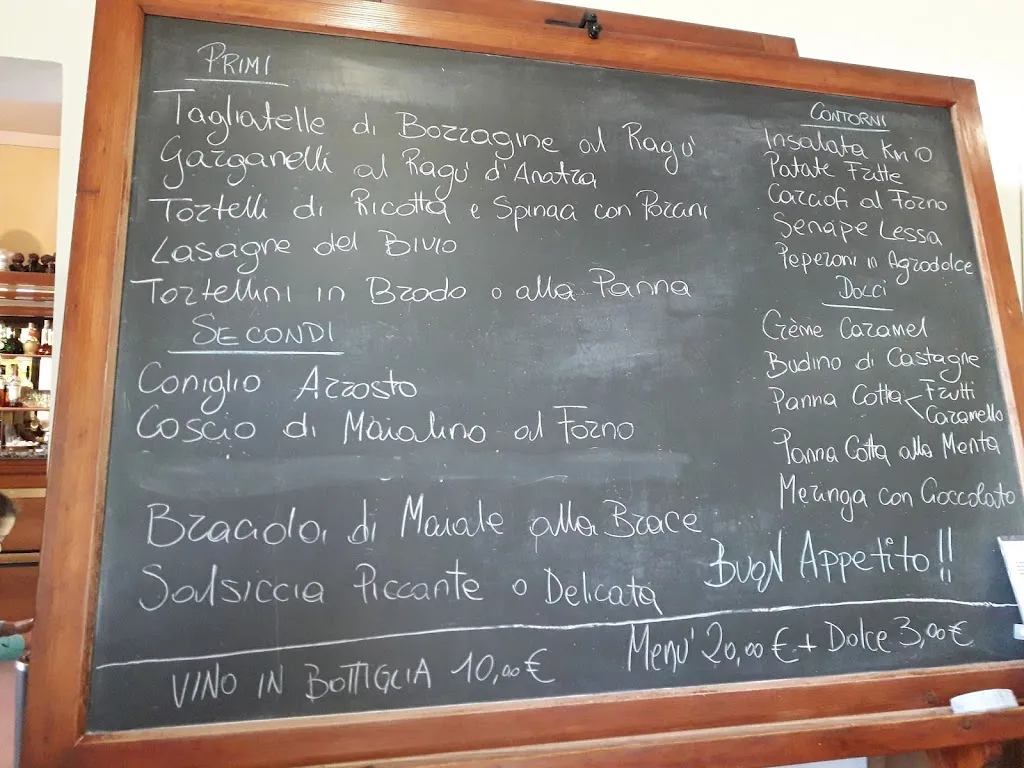 PRIMI
Tagliatelle di Borragine al Ragu'
Garganelli al Ragu' d'Anatra
Tortelli di Ricotta e Spinaci con Porcini
Lasagne del Bivio
Tortellini in Brodo o alla Panna
SECONDI
Coniglio Arrosto
Coscio di Maialino al Forno
Braciola di Maiale alla Brace
Salsiccia Piccante o Delicata
CONTORNI
Insalata Km 0
Patate Fritte
Carciofi al Forno
Senape Lessa
Peperoni in Agrodolce
DOLCI
Crème Caramel
Budino di Castagne
Panna Cotta Frutti
Caramello
Panna Cotta alla Menta
Meringa con Cioccolato
BUON Appetito!!
VINO IN BOTTIGLIA 10,00€
Menu' 20,00€ + Dolce 3,00€